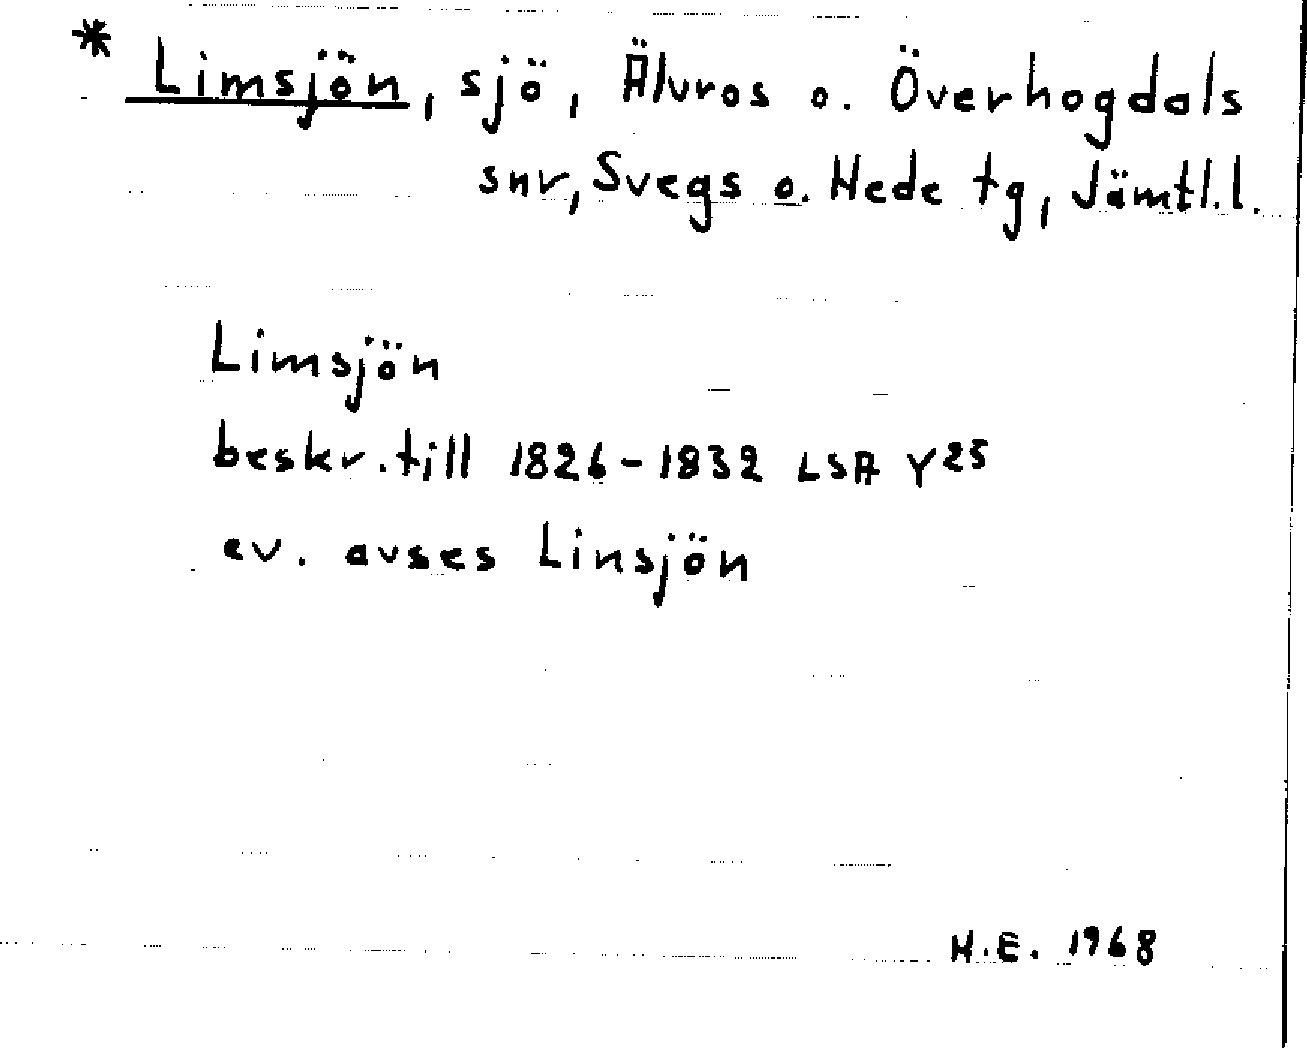 * Limsjön, sjö, Älvros o. Överhogdals
snr, Svegs o. Hede tg, Jämtl.l.
Limsjön
beskr. till 1826-1832 LSA Y25
ev. avses Linsjön
H.E. 1968